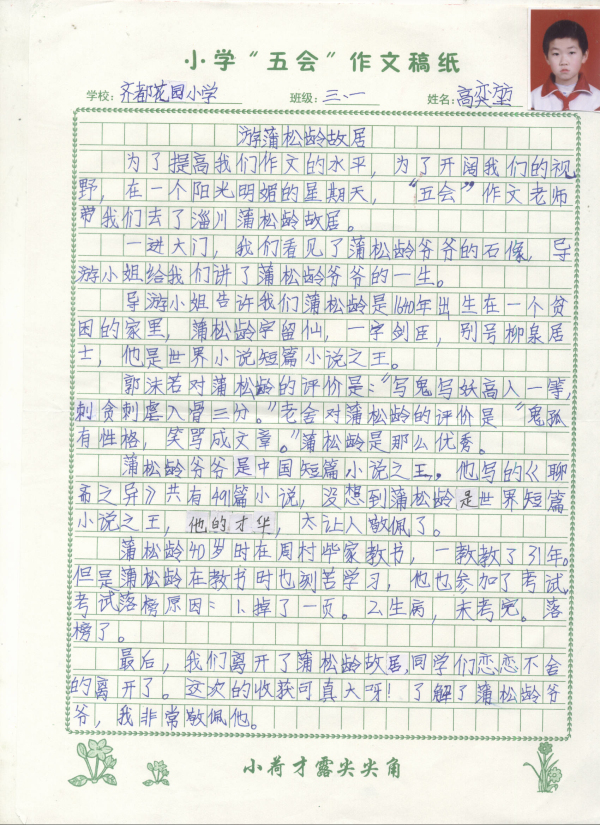 小学“五会”作文稿纸
学校: 齐都花园小学 班级: 三、一 姓名: 高奕堃
游蒲松龄故居
为了提高我们作文的水平，为了开阔我们的视
野，在一个阳光明媚的星期天，“五会”作文老师
带我们去了淄川蒲松龄故居。
一进大门，我们看见了蒲松龄爷爷的石像，导
游小姐给我们讲了蒲松龄爷爷的一生。
导游小姐告许我们蒲松龄是1640年出生在一个贫
困的家里，蒲松龄字留仙，一字剑臣，别号柳泉居
士，他是世界小说短篇小说之王。
郭沫若对蒲松龄的评价是：“写鬼写妖高人一等，
刺贪刺虐入骨三分。”老舍对蒲松龄的评价是“鬼狐
有性格，笑骂成文章。”蒲松龄是那么优秀。
蒲松龄爷爷是中国短篇小说之王，他写的《聊
斋之异》共有491篇小说，没想到蒲松龄是世界短篇
小说之王，他的才华，太让人敬佩了。
蒲松龄40岁时在周村毕家教书，一教教了31年。
但是蒲松龄在教书时也刻苦学习，他也参加了考试，
考试落榜原因：1.掉了一页。2.生病，未考完。落
榜了。
最后，我们离开了蒲松龄故居，同学们恋恋不舍
的离开了。这次的收获可真大呀！了解了蒲松龄爷
爷，我非常敬佩他。
小荷才露尖尖角